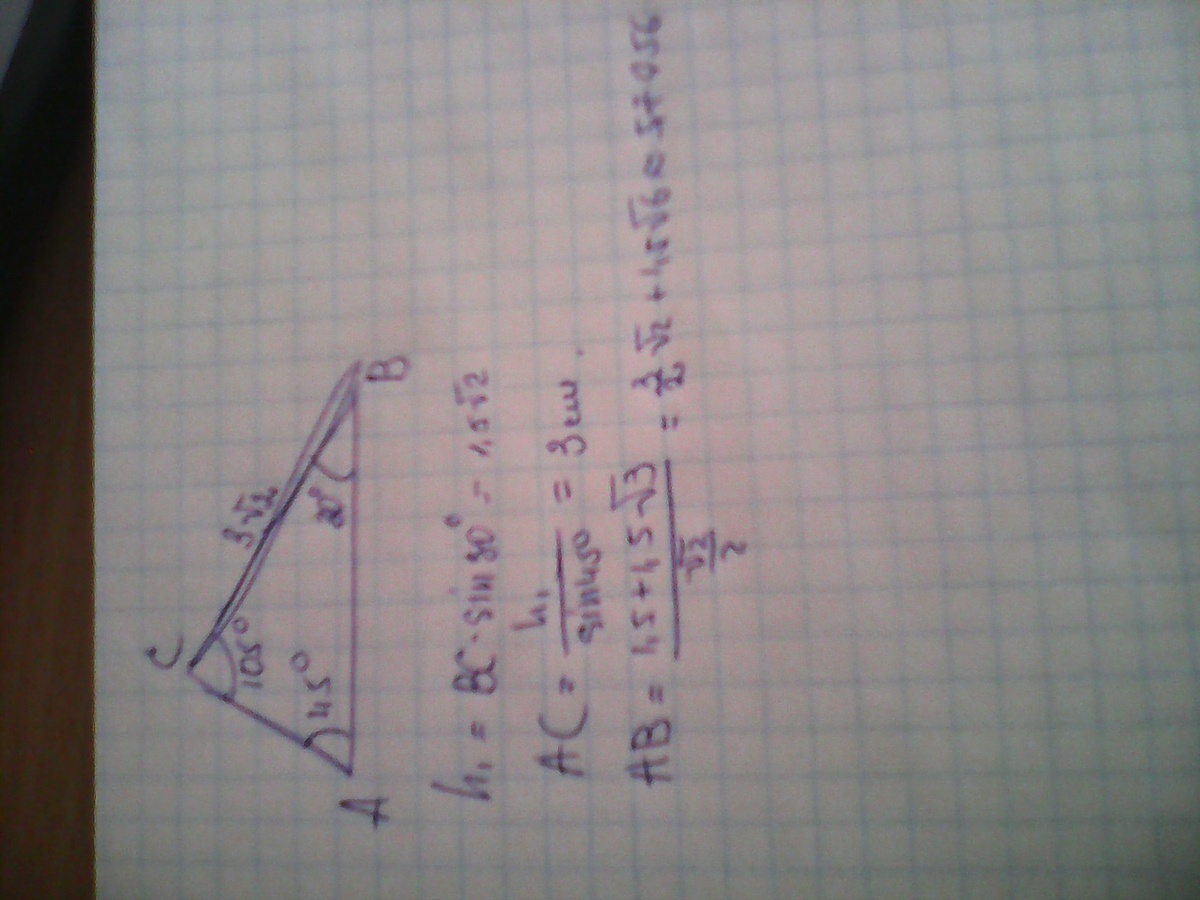 C
3√2
105°
45°
30°
A
B
h₁ = BC · sin 30° = 1,5√2
AC = h₁ / sin 45° = 3 см.
AB = (1,5 + 1,5√3) / (√2/2) = 3/2 √2 + 1,5√6 ≈ 5,7956